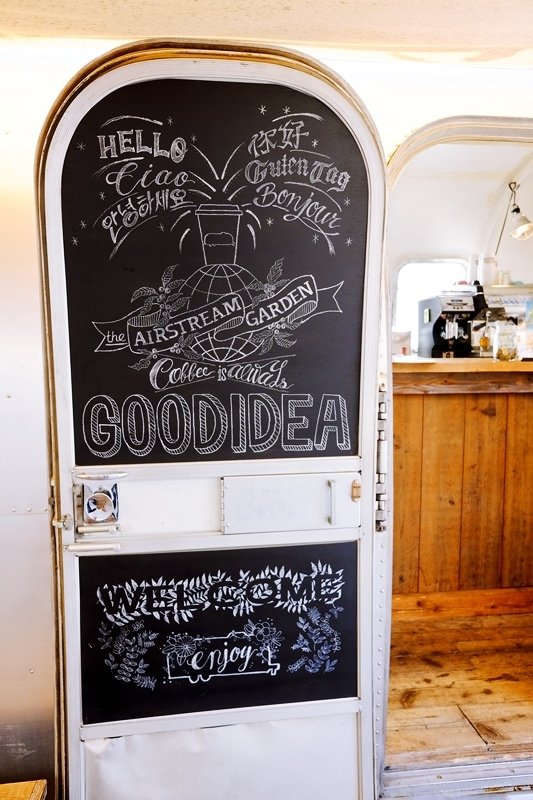 HELLO
Ciao
안녕하세요
你好
Guten Tag
Bonjour
the AIRSTREAM GARDEN
Coffee is always
GOOD IDEA
WELCOME
enjoy